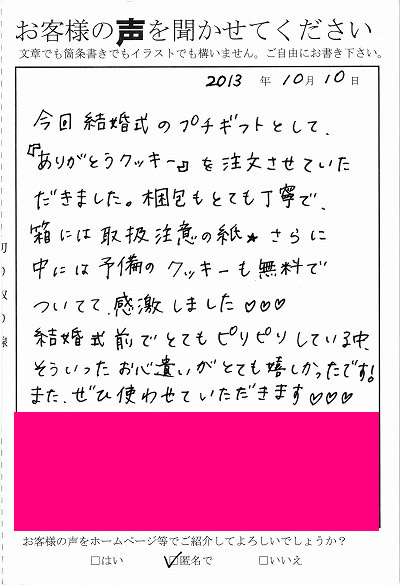 お客様の声を聞かせてください
文章でも箇条書きでもイラストでも構いません。ご自由にお書き下さい。
2013 年 10月 10日
今回 結婚式のプチギフトとして、
『ありがとうクッキー』を注文させていた
だきました。梱包もとても丁寧で、
箱には取扱注意の紙★さらに
中には予備のクッキーも無料で
ついてて、感激しました♡♡♡
結婚式前でとてもピリピリしている中、
そういったお心遣いがとても嬉しかったです!
また、ぜひ使わせていただきます♡♡♡
お客様の声をホームページ等でご紹介してよろしいでしょうか?
□はい ☑匿名で □いいえ